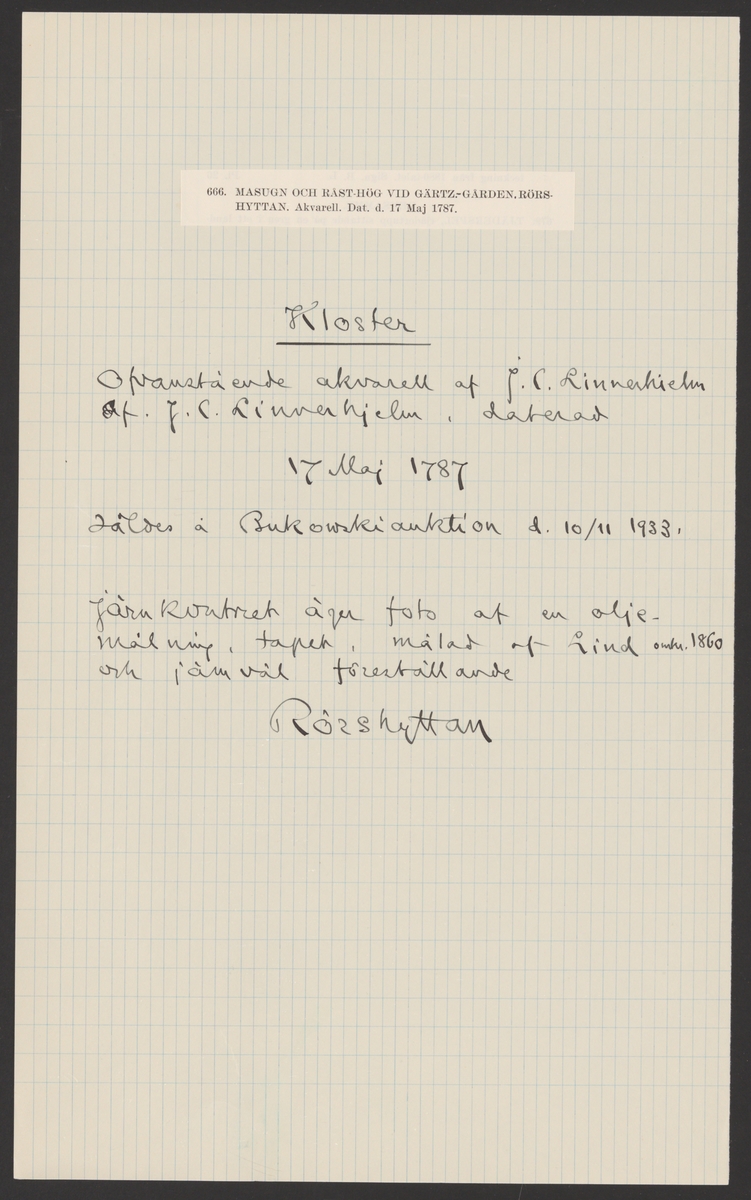 666. MASUGN OCH RÅST-HÖG VID GÄRTZ-GÅRDEN, RÖRS-
HYTTAN. Akvarell. Dat. d. 17 Maj 1787.
Kloster
Ofvanstående akvarell af J. C. Linnerhielm
af. J. C. Linnerhjelm, daterad
17 Maj 1787
såldes å Bukowskiauktion d. 10/11 1933.
Järnkontoret äger foto af en olje-
målning, tapet, målad af Lind omkr. 1860
och jämväl föreställande
Rörshyttan